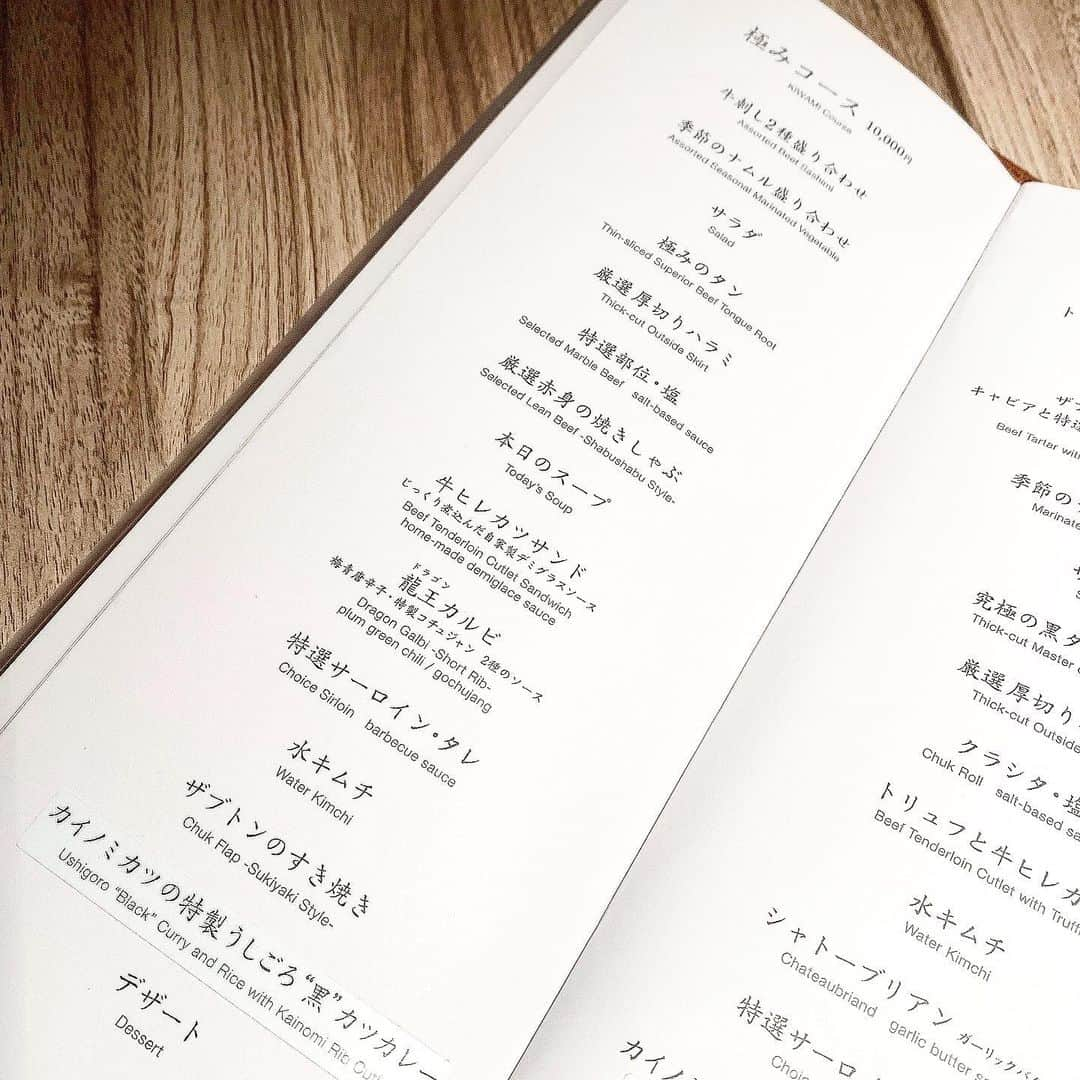 極みコース 10,000円
KIWAMI Course
牛刺し2種盛り合わせ
Assorted Beef Sashimi
季節のナムル盛り合わせ
Assorted Seasonal Marinated Vegetable
サラダ
Salad
極みのタン
Thin-sliced Superior Beef Tongue Root
厳選厚切りハラミ
Thick-cut Outside Skirt
特選部位・塩
Selected Marble Beef salt-based sauce
厳選赤身の焼きしゃぶ
Selected Lean Beef -Shabushabu Style-
本日のスープ
Today's Soup
牛ヒレカツサンド
じっくり煮込んだ自家製デミグラスソース
Beef Tenderloin Cutlet Sandwich
home-made demiglace sauce
ドラゴン
龍王カルビ
梅青唐辛子・特製コチュジャン 2種のソース
Dragon Galbi -Short Rib-
plum green chili / gochujang
特選サーロイン・タレ
Choice Sirloin barbecue sauce
水キムチ
Water Kimchi
ザブトンのすき焼き
Chuk Flap -Sukiyaki Style-
カイノミカツの特製うしごろ“黒”カツカレー
Ushigoro “Black” Curry and Rice with Kainomi Rib
デザート
Dessert
ト
ザブ
キャビアと特選
Beef Tarter with
季節の
Marinate
究極の黒タ
Thick-cut Master
厳選厚切り
Thick-cut Outside
クラシタ・塩
Chuk Roll salt-based sau
トリュフと牛ヒレカ
Beef Tenderloin Cutlet with Truff
水キムチ
Water Kimchi
シャトーブリアン ガーリックバ
Chateaubriand garlic butter s
特選サーロ
Choic
カイノ